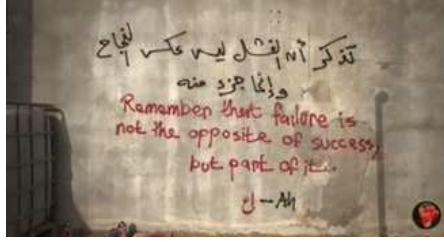 تذكر أن الفشل ليس عكس النجاح
وإنما جزء منه
Remember that failure is
not the opposite of success,
but part of it.